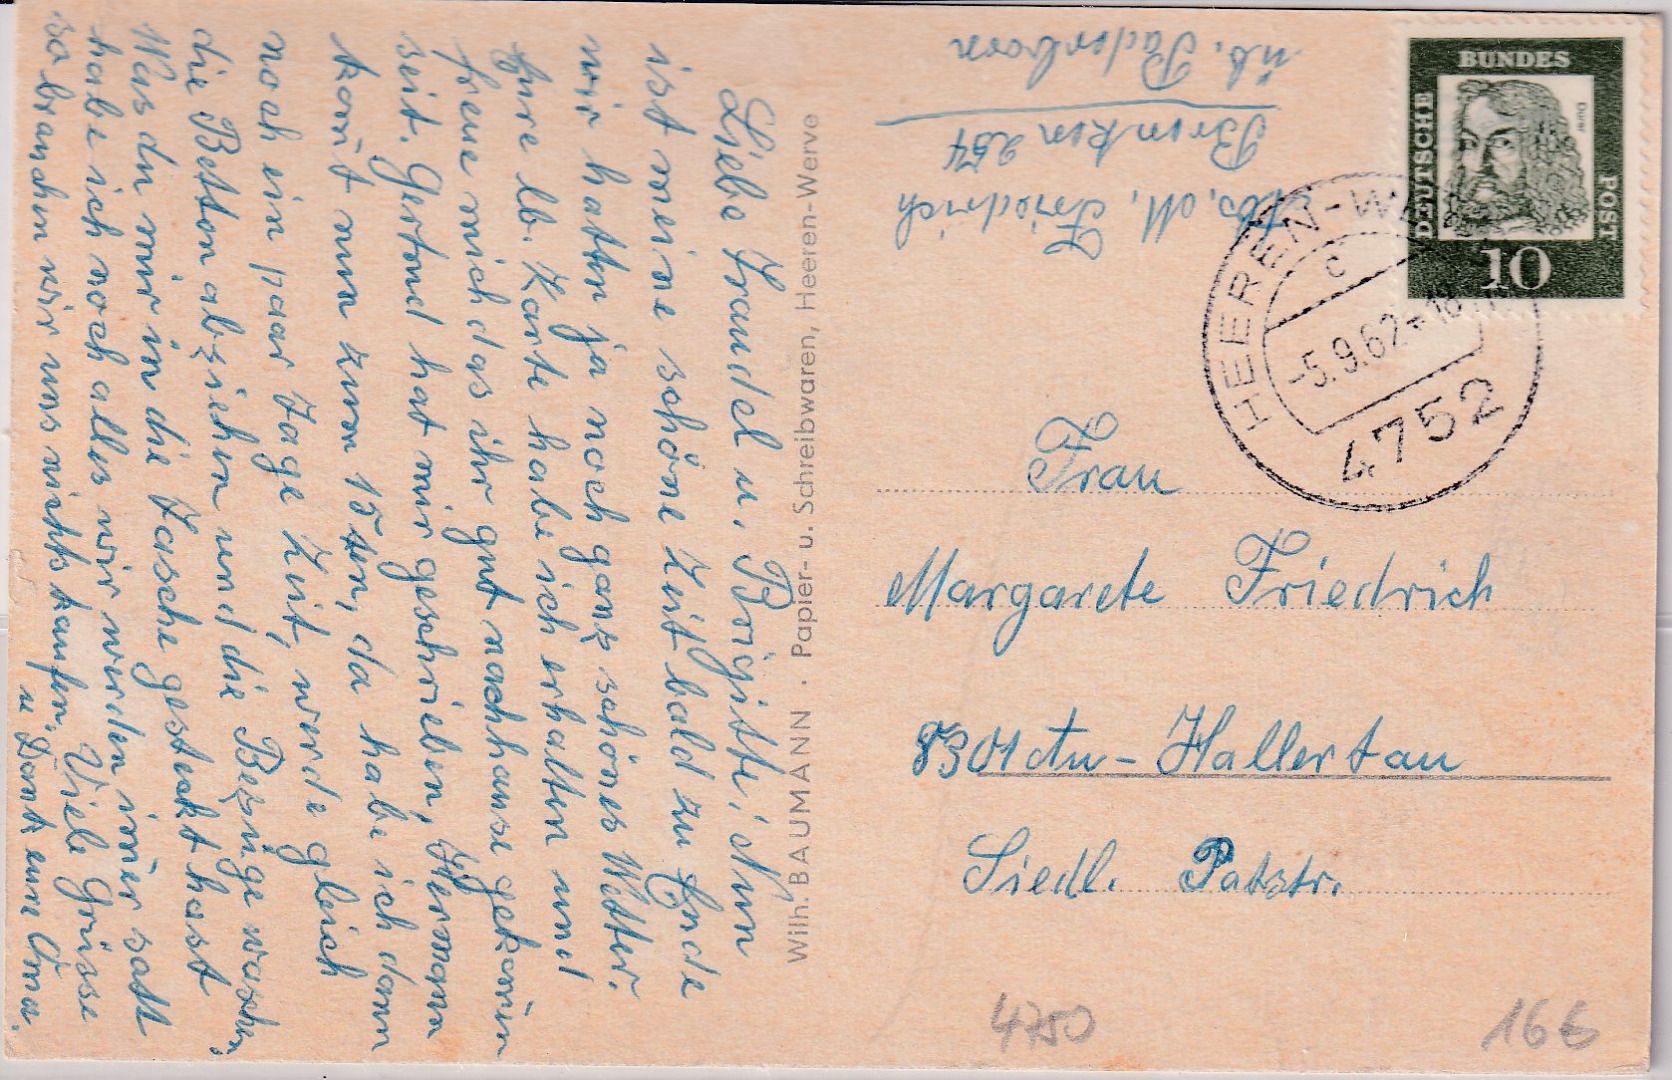 Liebe Traudel u. Brigitte! Nun
ist meine schöne Zeit bald zu Ende
wir hatten ja noch ganz schönes Wetter.
Eure lb. Karte habe ich erhalten und
freue mich das ihr gut nachhause gekom̄en
seit. Gertrud hat mir geschrieben, Hermann
kom̄t nun zum 15ten, da habe ich dann
noch ein paar Tage Zeit, werde gleich
die Betten abziehen und die Bezüge waschen,
Was du mir in die Tasche gesteckt hast
habe ich noch alles wir werden im̄er satt
so brauchen wir uns nichts kaufen. Viele Grüsse
u Dank eure Oma.
Wilh. BAUMANN · Papier- u. Schreibwaren, Heeren-Werve
Abs. M. Friedrich
254
üb. Paderborn
DEUTSCHE
BUNDES
POST
DÜRER
10
HEEREN-WE
c
-5.9.62-18
4752
Frau
Margarete Friedrich
8301 Au-Hallertau
Siedl. Patstr.
4750
16 €